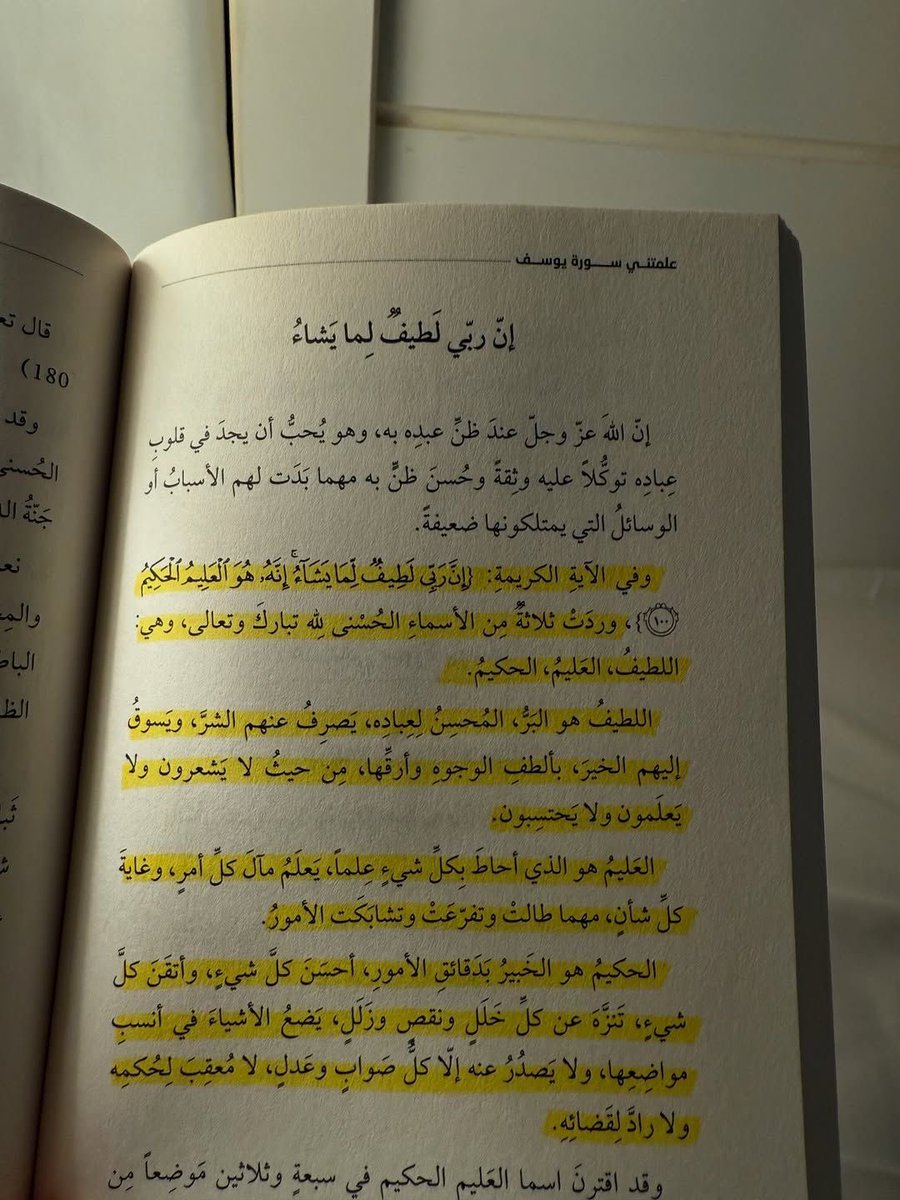 علمتني ســـورة يوســف
إنّ ربّي لَطيفٌ لِما يَشاءُ
إنّ اللهَ عزّ وجلّ عندَ ظنِّ عبدِه به، وهو يُحبُّ أن يجدَ في قلوبِ
عِبادِه توكُّلاً عليه وثِقةً وحُسنَ ظنٍّ به مهما بَدَت لهم الأسبابُ أو
الوسائلُ التي يمتلكونها ضعيفةً.
وفي الآيةِ الكريمةِ: {إِنَّ رَبِّي لَطِيفٌ لِّمَا يَشَآءُ ۚ إِنَّهُۥ هُوَ ٱلْعَلِيمُ ٱلْحَكِيمُ
١٠٠}، وردَتْ ثلاثةٌ مِن الأسماءِ الحُسْنى لِله تباركَ وتعالى، وهي:
اللطيفُ، العَليمُ، الحكيمُ.
اللطيفُ هو البَرُّ، المُحسِنُ لِعِبادِه، يَصرِفُ عنهم الشرَّ، ويَسوقُ
إليهم الخيرَ، بألطفِ الوجوهِ وأرقِّها، مِن حيثُ لا يَشعرون ولا
يَعلَمون ولا يَحتسِبون.
العَليمُ هو الذي أحاطَ بِكلِّ شيءٍ عِلماً، يَعلَمُ مآلَ كلِّ أمرٍ، وغايةَ
كلِّ شأنٍ، مهما طالتْ وتفرّعَتْ وتشابَكَت الأمورُ.
الحكيمُ هو الخَبيرُ بَدَقائقِ الأمورِ، أحسَنَ كلَّ شيءٍ، وأتقَنَ كلَّ
شيءٍ، تَنزَّهَ عن كلِّ خَلَلٍ ونقصٍ وزَلَلٍ، يَضعُ الأشياءَ في أنسبِ
مواضِعِها، ولا يَصدُرُ عنه إلّا كلُّ صَوابٍ وعَدلٍ، لا مُعقِبَ لِحُكمِه
ولا رادَّ لِقَضائِهِ.
وقد اقترنَ اسما العَليم الحكيم في سبعةٍ وثلاثين مَوضِعاً مِن
قال
180)
وقد